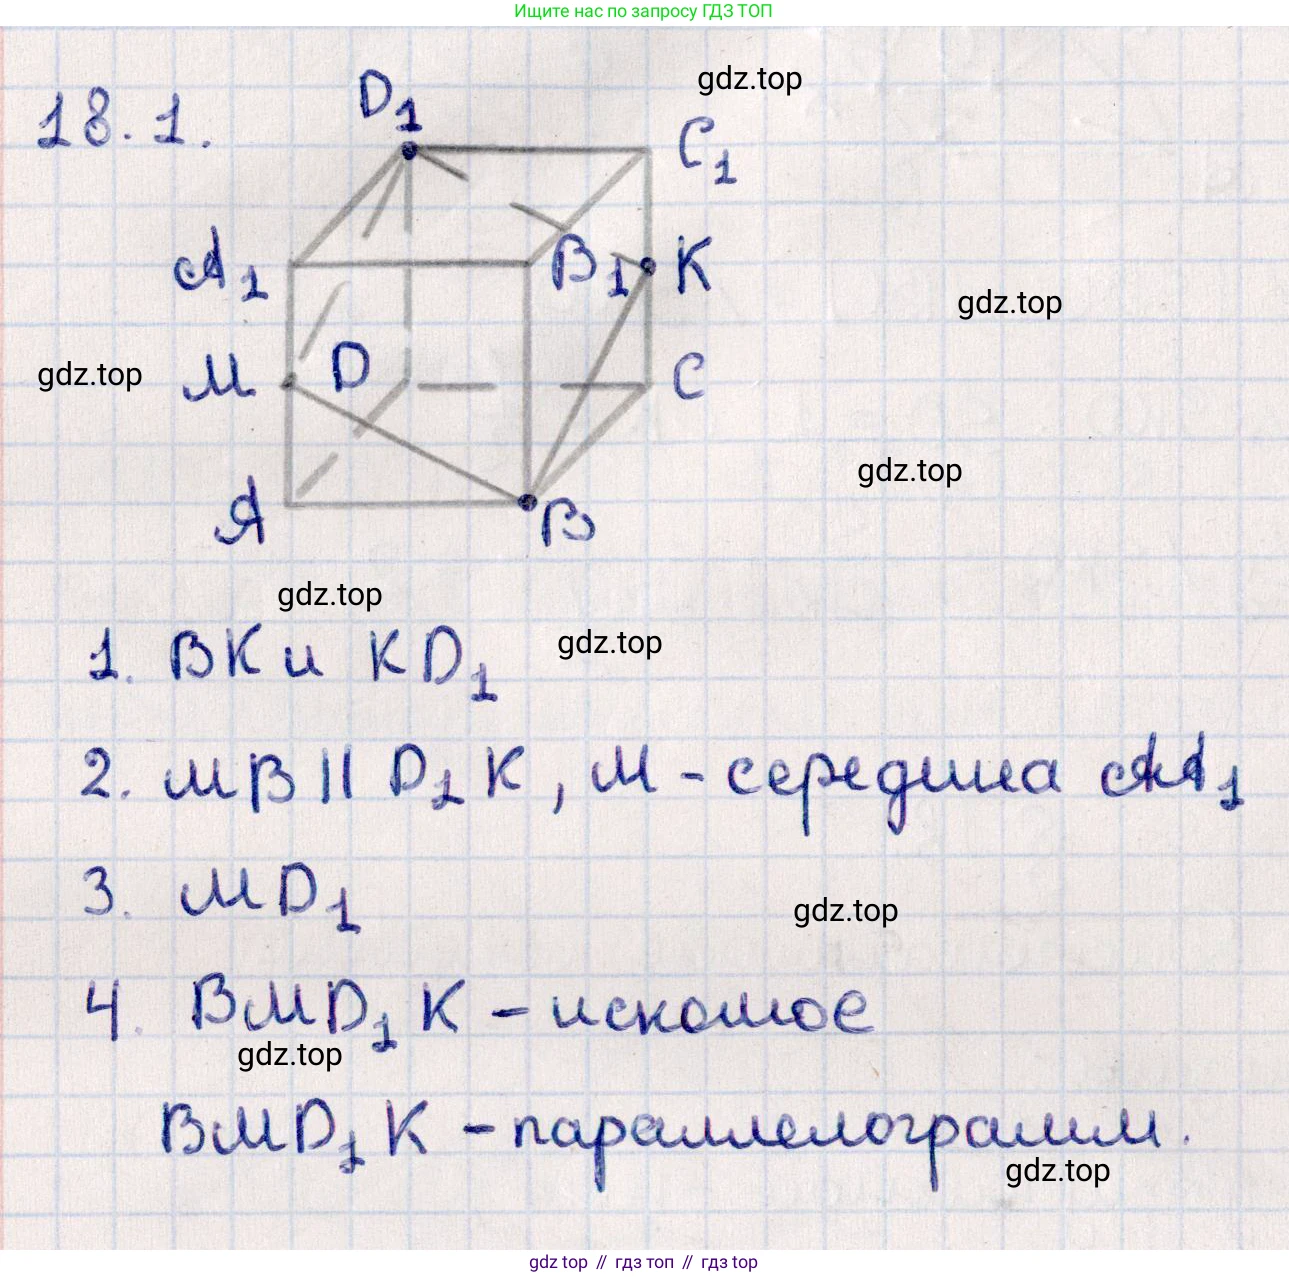 Ищите нас по запросу ГДЗ ТОП
gdz.top
18.1.
D1
C1
A1
B1
K
gdz.top
gdz.top
M
D
C
gdz.top
A
B
gdz.top
gdz.top
1. BK и KD1
2. MB || D1K, M - середина AA1
3. MD1
gdz.top
4. BMD1K - искомое
gdz.top
BMD1K - параллелограмм.
gdz.top
gdz top // гдз топ // гдз top